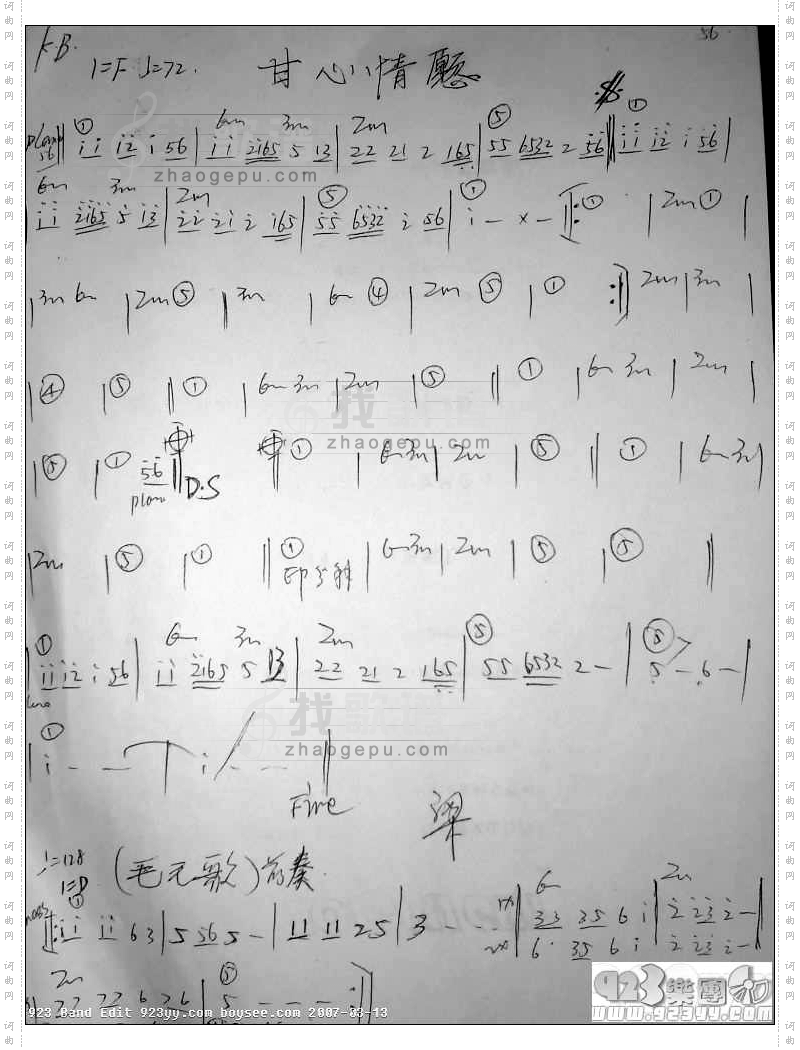 K.B.
56
1=F ♩=72. 甘心情愿
piano 56 ‖ ① i i i 2 i 56 | 6m i i 2165 3m 5 13 | 2m 22 21 2 165 | ⑤ 55 6532 2 56 ‖ ① i i i 2 i 56 |
6m i i 2165 3m 5 13 | 2m 22 21 2 165 | ⑤ 55 6532 2 56 | ① i – x – ‖: ① | 2m ① |
| 3m 6m | 2m ⑤ | 3m | 6m ④ | 2m ⑤ | ① :‖ 2m | 3m |
| ④ | ⑤ ‖ ① | 6m 3m | 2m | ⑤ ‖ ① | 6m 3m | 2m |
| ⑤ | ① 56 ‖ D.S ‖ ① | 6m 3m | 2m | ⑤ ‖ ① | 6m 3m |
piano
| 2m | ⑤ | ① ‖ ① | 6m 3m | 2m | ⑤ | ⑤ ‖
| ① i i i 2 i 56 | 6m i i 2165 3m 5 13 | 2m 22 21 2 165 | ⑤ 55 6532 2 – | ⑤ 5 – 6 – |
| ① i – – – | i – – – ‖
Fine
♩=128
(毛毛歌)前奏
‖: ① i i i i 6 3 | 5 56 5 – | 11 11 25 | 3 – – | 6m 33 35 6 i | 2m 2 23 2 – |
6· 35 6 i 2 23 2 –
2m 22 22 6 26 | ⑤ 5 – – – :‖
923 Band Edit 923yy.com boysee.com 2007-03-13
923樂團
www.923yy.com
zhaogepu.com
找歌谱
zhaogepu.com
找歌谱
zhaogepu.com
词曲网